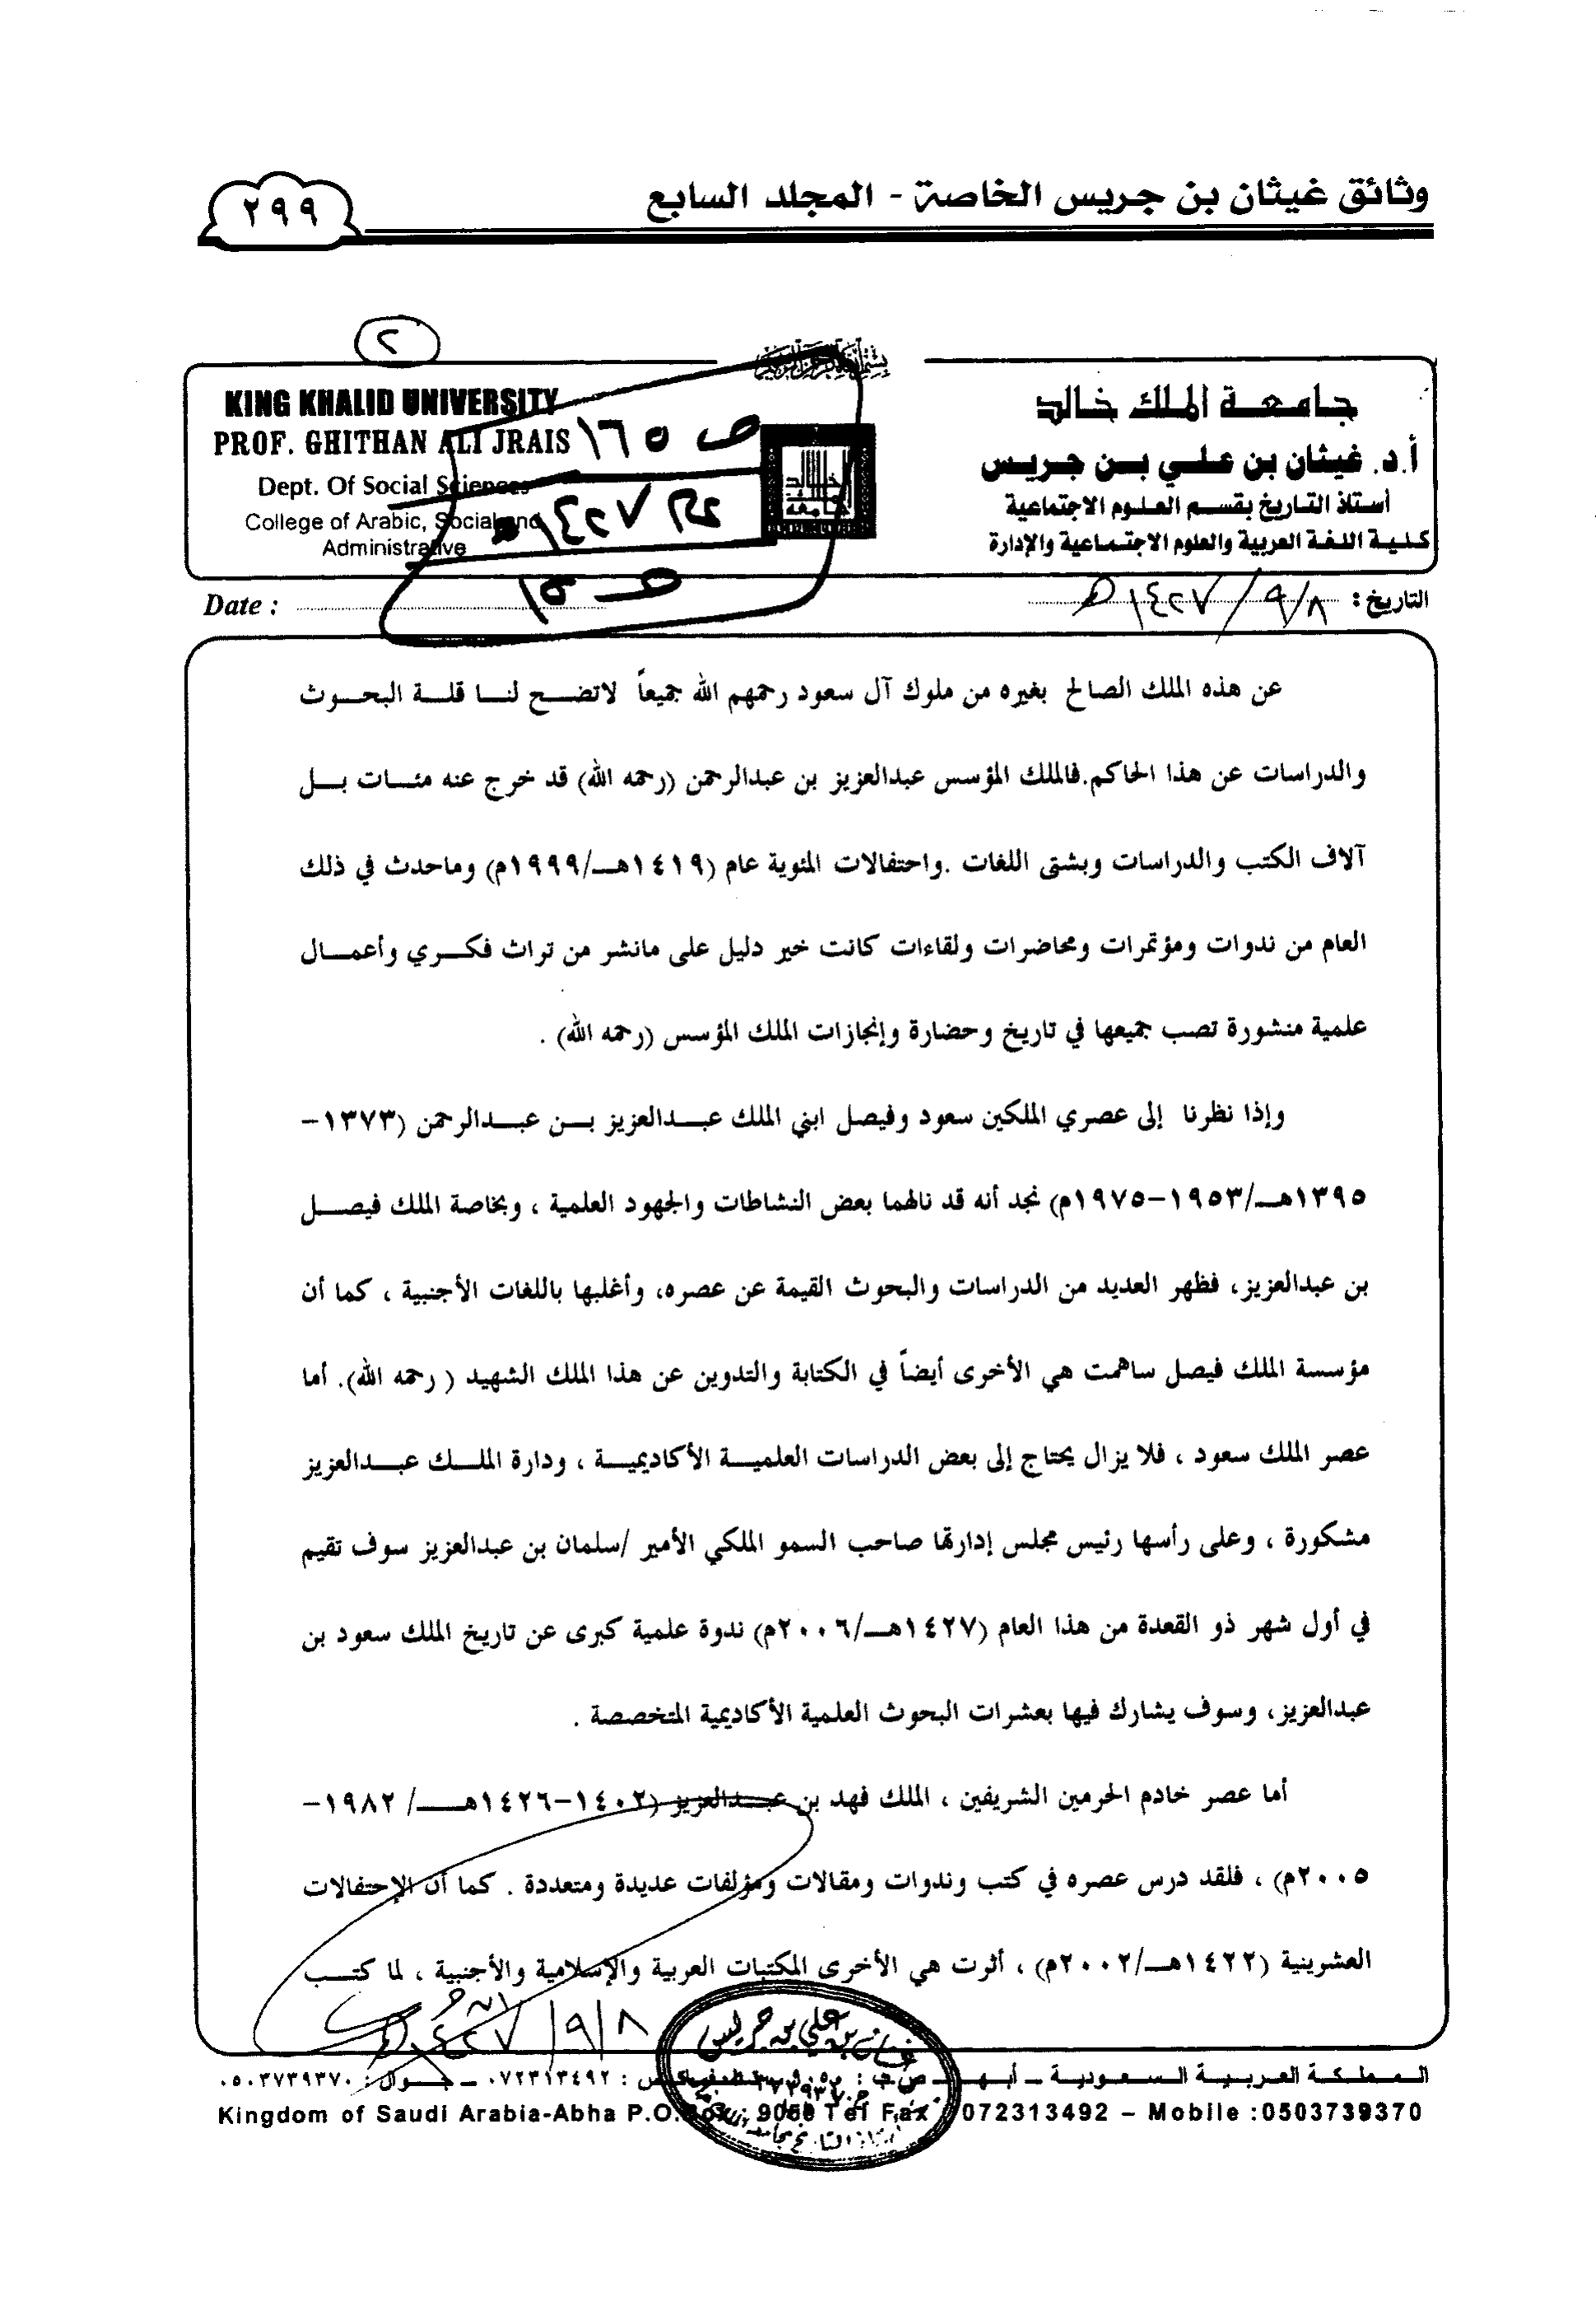 وثائق غيثان بن جريس الخاصة - المجلد السابع
٢٩٩
٢
جامعة الملك خالد
أ.د. غيثان بن علي بن جريس
أستاذ التاريخ بقسم العلوم الاجتماعية
كلية اللغة العربية والعلوم الاجتماعية والإدارة
KING KHALID UNIVERSITY
PROF. GHITHAN ALI JRAIS
Dept. Of Social Sciences
College of Arabic, Social and
Administrative
ص ١٦٥
١٤٢٧
ص ١٥
التاريخ: ٨/٩/١٤٢٧هـ
Date :
عن هذه الملك الصالح بغيره من ملوك آل سعود رحمهم الله جميعاً لاتضح لنا قلة البحوث
والدراسات عن هذا الحاكم.فالملك المؤسس عبدالعزيز بن عبدالرحمن (رحمه الله) قد خرج عنه مئات بل
آلاف الكتب والدراسات وبشتى اللغات .واحتفالات المئوية عام (١٤١٩هـ/١٩٩٩م) وماحدث في ذلك
العام من ندوات ومؤتمرات ومحاضرات ولقاءات كانت خير دليل على مانشر من تراث فكري وأعمال
علمية منشورة تصب جميعها في تاريخ وحضارة وإنجازات الملك المؤسس (رحمه الله) .
وإذا نظرنا إلى عصري الملكين سعود وفيصل ابني الملك عبدالعزيز بن عبدالرحمن (١٣٧٣-
١٣٩٥هـ/١٩٥٣-١٩٧٥م) نجد أنه قد نالهما بعض النشاطات والجهود العلمية ، وبخاصة الملك فيصل
بن عبدالعزيز، فظهر العديد من الدراسات والبحوث القيمة عن عصره، وأغلبها باللغات الأجنبية ، كما أن
مؤسسة الملك فيصل ساهمت هي الأخرى أيضاً في الكتابة والتدوين عن هذا الملك الشهيد ( رحمه الله). أما
عصر الملك سعود ، فلا يزال يحتاج إلى بعض الدراسات العلمية الأكاديمية ، ودارة الملك عبدالعزيز
مشكورة ، وعلى رأسها رئيس مجلس إدارتها صاحب السمو الملكي الأمير /سلمان بن عبدالعزيز سوف تقيم
في أول شهر ذو القعدة من هذا العام (١٤٢٧هـ/٢٠٠٦م) ندوة علمية كبرى عن تاريخ الملك سعود بن
عبدالعزيز، وسوف يشارك فيها بعشرات البحوث العلمية الأكاديمية المتخصصة .
أما عصر خادم الحرمين الشريفين ، الملك فهد بن عبدالعزيز (١٤٠٢-١٤٢٦هـ/ ١٩٨٢-
٢٠٠٥م) ، فلقد درس عصره في كتب وندوات ومقالات ومؤلفات عديدة ومتعددة . كما أن الإحتفالات
العشرينية (١٤٢٢هـ/٢٠٠٢م) ، أثرت هي الأخرى المكتبات العربية والإسلامية والأجنبية ، لما كتب
٨/٩/١٤٢٧هـ
غيثان بن علي بن جريس
المملكة العربية السعودية – أبها – ص.ب : : ٠٧٢٣١٣٤٩٢ – جوال : ٠٥٠٣٧٣٩٣٧٠
Kingdom of Saudi Arabia-Abha P.O.Box : 9050 Tel Fax 072313492 – Mobile :0503739370